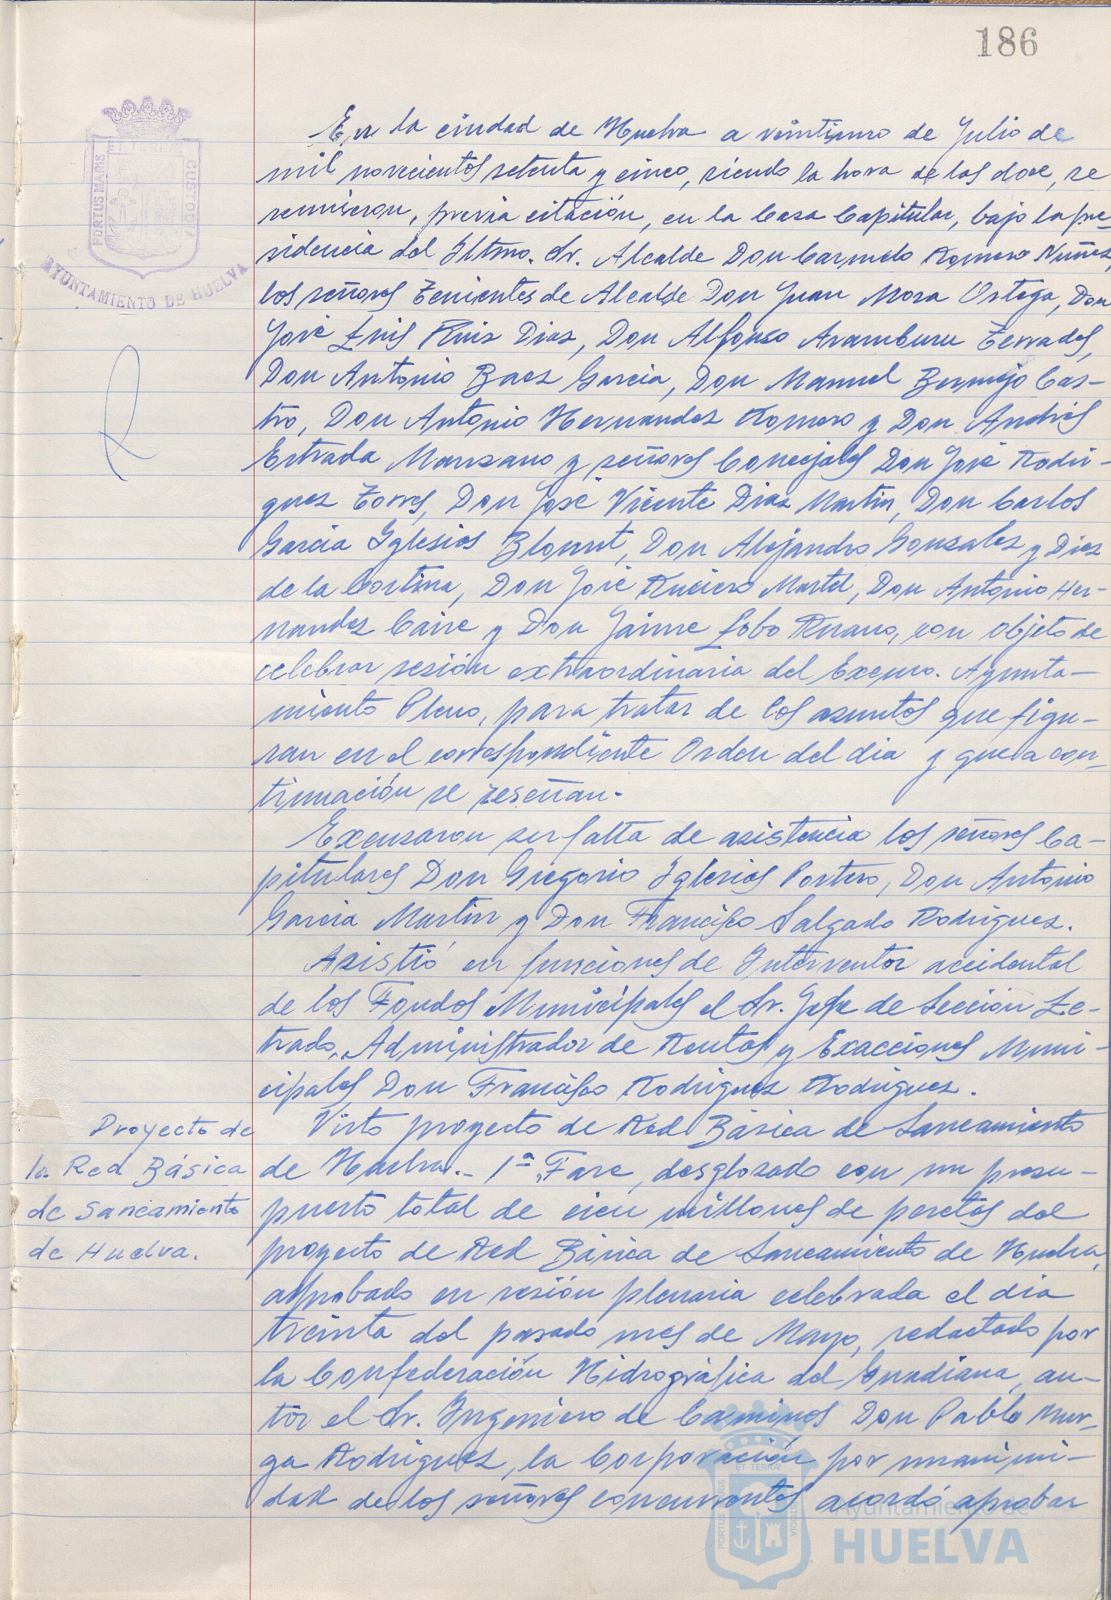 186
PORTUS MARIS
ET TERRAE
CUSTODIA
AYUNTAMIENTO DE HUELVA
En la ciudad de Huelva a veintiuno de Julio de
mil novecientos setenta y cinco, siendo la hora de las doce, se
reunieron, previa citación, en la Casa Capitular, bajo la pre-
sidencia del Iltmo. Sr. Alcalde Don Carmelo Romero Núñez,
los señores Tenientes de Alcalde Don Juan Mora Ortega, Don
José Luis Ruiz Diaz, Don Alfonso Aramburu Terrades,
Don Antonio Baez Garcia, Don Manuel Bermejo Cas-
tro, Don Antonio Hernandez Romero y Don Andrés
Estrada Manzano y señores Concejales Don José Rodri-
guez Torres, Don José Vicente Diaz Martin, Don Carlos
Garcia Iglesias Blount, Don Alejandro Gonzalez y Diez
de la Cortina, Don José Martel, Don Antonio Her-
nandez Caire y Don Jaime Lobo con objeto de
celebrar sesión extraordinaria del Excmo. Ayunta-
miento Pleno, para tratar de los asuntos que figu-
ran en el correspondiente Orden del dia y que a con-
tinuación se reseñan.
Excusaron su falta de asistencia los señores Ca-
pitulares Don Gregorio Iglesias Portero, Don Antonio
Garcia Martin y Don Francisco Salgado Rodriguez.
Asistió en funciones de Interventor accidental
de los Fondos Municipales el Sr. Jefe de Sección Le-
trado, Administrador de Rentas y Exacciones Muni-
cipales Don Francisco Rodriguez Rodriguez.
Proyecto de
la Red Básica
de Saneamiento
de Huelva.
Visto proyecto de Red Básica de Saneamiento
de Huelva.- 1ª Fase, desglosado con un presu-
puesto total de cien millones de pesetas del
proyecto de Red Básica de Saneamiento de Huelva,
aprobado en sesión plenaria celebrada el dia
treinta del pasado mes de Mayo, redactado por
la Confederación Hidrográfica del Guadiana, au-
tor el Sr. Ingeniero de Caminos Don Pablo Mur-
ga Rodriguez, la Corporación por unanimi-
dad de los señores concurrentes acordó aprobar
Ayuntamiento de
HUELVA